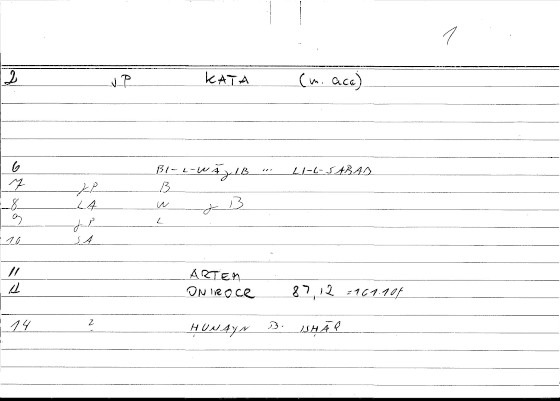 1
2 JP KATA (w. acc)
6 BI-L-WĀǧIB ... LI-L-SABAB
7 JP B
8 LA W ǧ B
9 JP L
10 SA
11 ARTEM
12 ONIROCR 87,12 =161.10f
14 2 ḤUNAYN B. ISḤĀQ